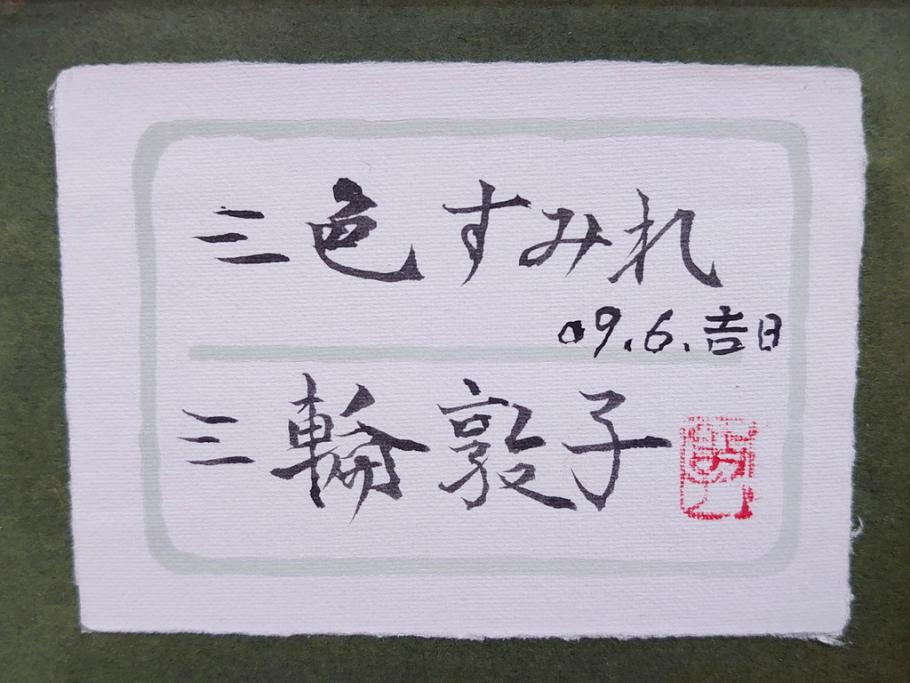 三色すみれ
09.6.吉日
三輪敦子